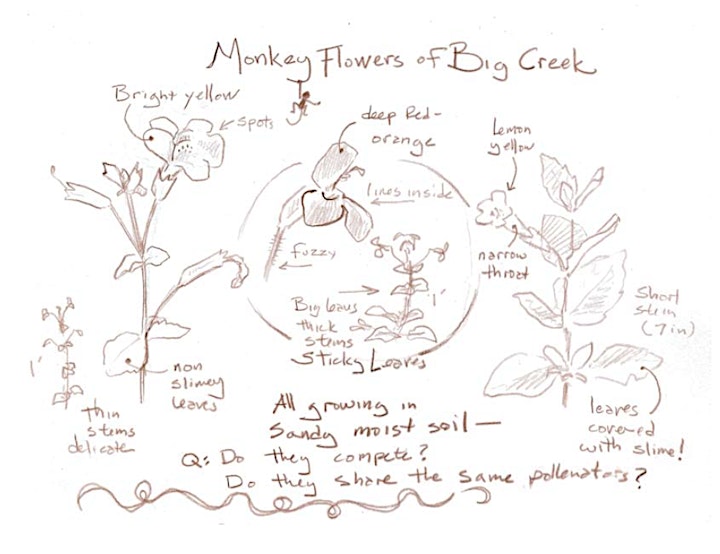 Monkey Flowers of Big Creek
Bright yellow
spots
deep Red-
orange
lines inside
fuzzy
Lemon
yellow
narrow
throat
Big leavs
thick
stems
Sticky Leaves
1'
Short
stem
(7in)
1'
thin
stems
delicate
non
slimey
leaves
leaves
covered
with slime!
All growing in
Sandy moist soil —
Q: Do they compete?
Do they share the same pollenators?